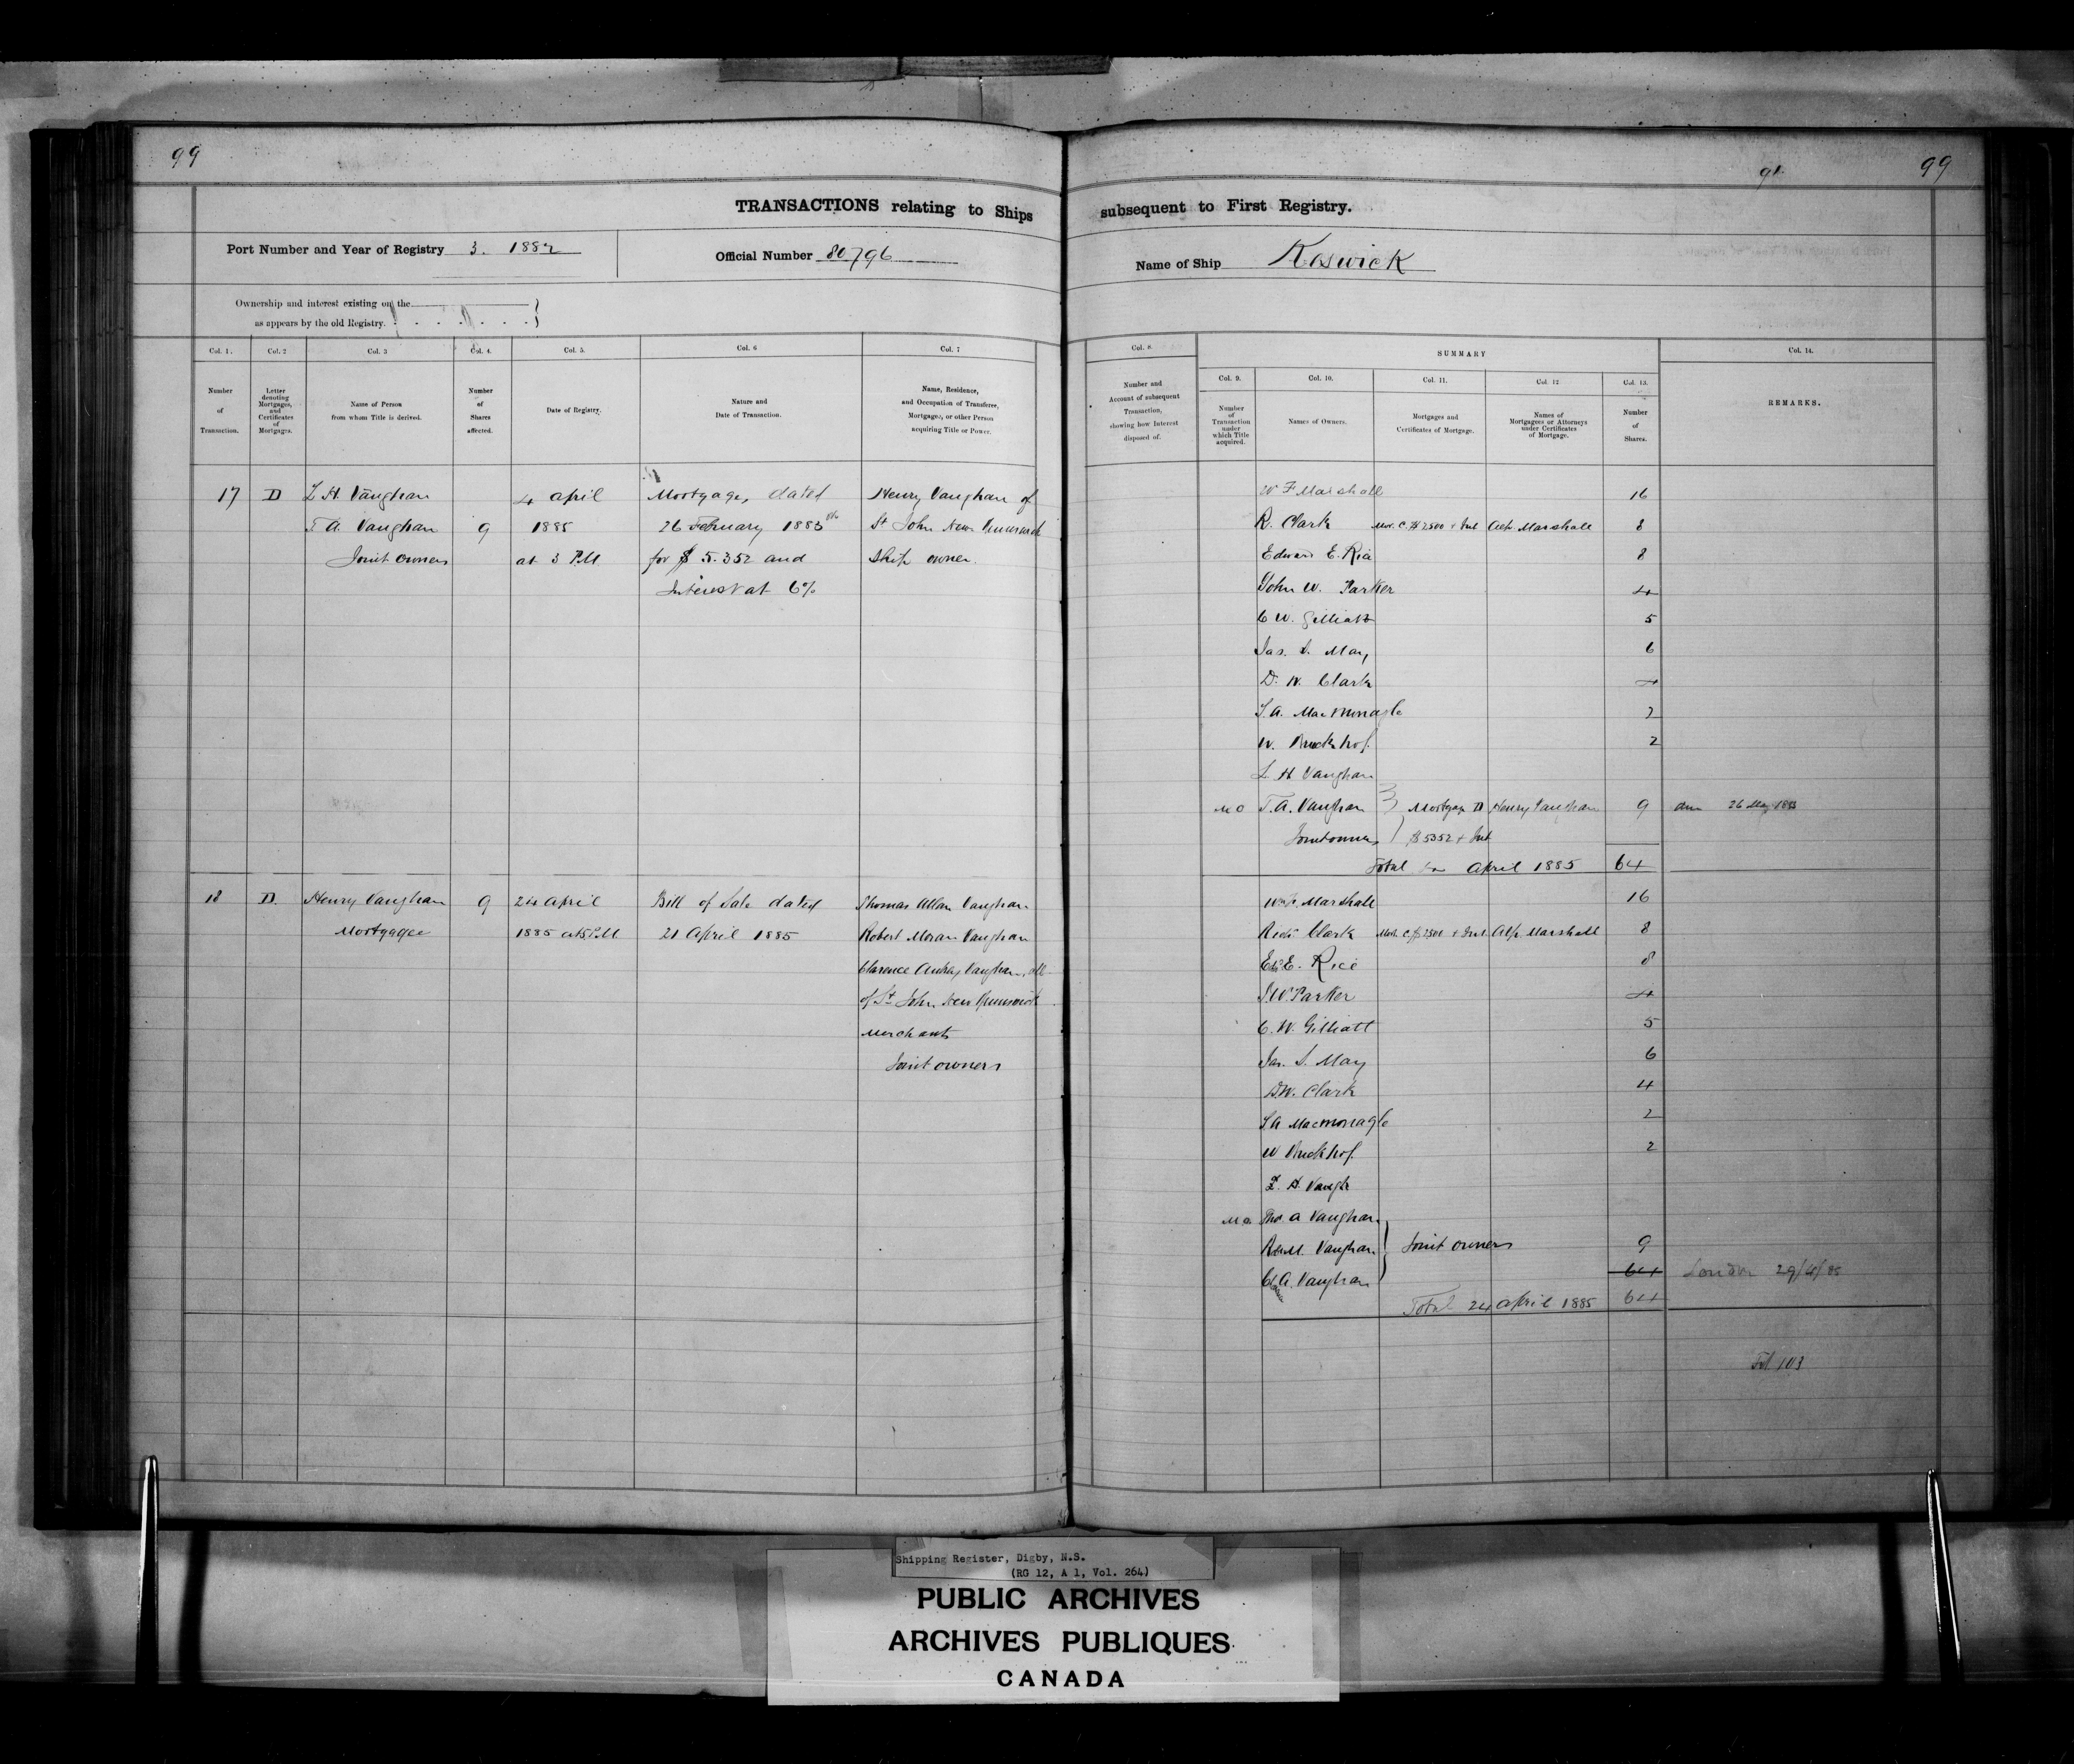 99
TRANSACTIONS relating to Ships
Port Number and Year of Registry 3. 1882
Official Number 80796
Ownership and interest existing on the
as appears by the old Registry.
Col. 1. Col. 2 Col. 3 Col. 4. Col. 5. Col. 6 Col. 7
Number of Transaction.
Letter denoting Mortgages, and Certificates of Mortgages.
Name of Person from whom Title is derived.
Number of Shares affected.
Date of Registry.
Nature and Date of Transaction.
Name, Residence, and Occupation of Transferee, Mortgagee, or other Person acquiring Title or Power.
17 D L H. Vaughan 4 April Mortgage, dated Henry Vaughan of
T A. Vaughan 9 1885 26 February 1883 St John New Brunswick
Joint owners at 3 P.M for $ 5.352 and Ship owner.
Interest at 6%
18 D. Henry Vaughan 9 24 April Bill of Sale dated Thomas Allan Vaughan
Mortgagee 1885 at 5 P.M 21 April 1885 Robert Moran Vaughan
Clarence Vaughan, all
of St John New Brunswick
Merchants
Joint owners
91
99
subsequent to First Registry.
Name of Ship Keswick
Col. 8.
Number and Account of subsequent Transaction, showing how Interest disposed of.
SUMMARY
Col. 9. Col. 10. Col. 11. Col. 12 Col. 13.
Number of Transaction under which Title acquired.
Names of Owners.
Mortgages and Certificates of Mortgage.
Names of Mortgagees or Attorneys under Certificates of Mortgage.
Number of Shares.
Col. 14.
REMARKS.
W F Marshall 16
R. Clark Mor. C. $2500 + Int Alf. Marshall 8
Edward E. Rice 8
John W. Parker 4
C W. Gilliatt 5
Jas. S. May 6
D. W. Clark 4
S. A. MacMonagle 2
W. 2
L H Vaughan
M O T. A. Vaughan Mortgage D Henry Vaughan 9 26 May
Joint owners $5352 + Int
Total April 1885 64
Marshall 16
Clark Mor. C. $2500 + Int. Alf. Marshall 8
E. Rice 8
J. W. Parker 4
C. W. Gilliatt 5
Jas. S. May 6
D.W. Clark 4
S A Macmonagle 2
W 2
L. H. Vaugh
M O. Tho. A Vaughan
M. Vaughan Joint owners 9
A. Vaughan 64 London 29/4/85
Total 24 April 1885 64
Fol 103
Shipping Register, Digby, N.S.
(RG 12, A 1, Vol. 264)
PUBLIC ARCHIVES
ARCHIVES PUBLIQUES
CANADA